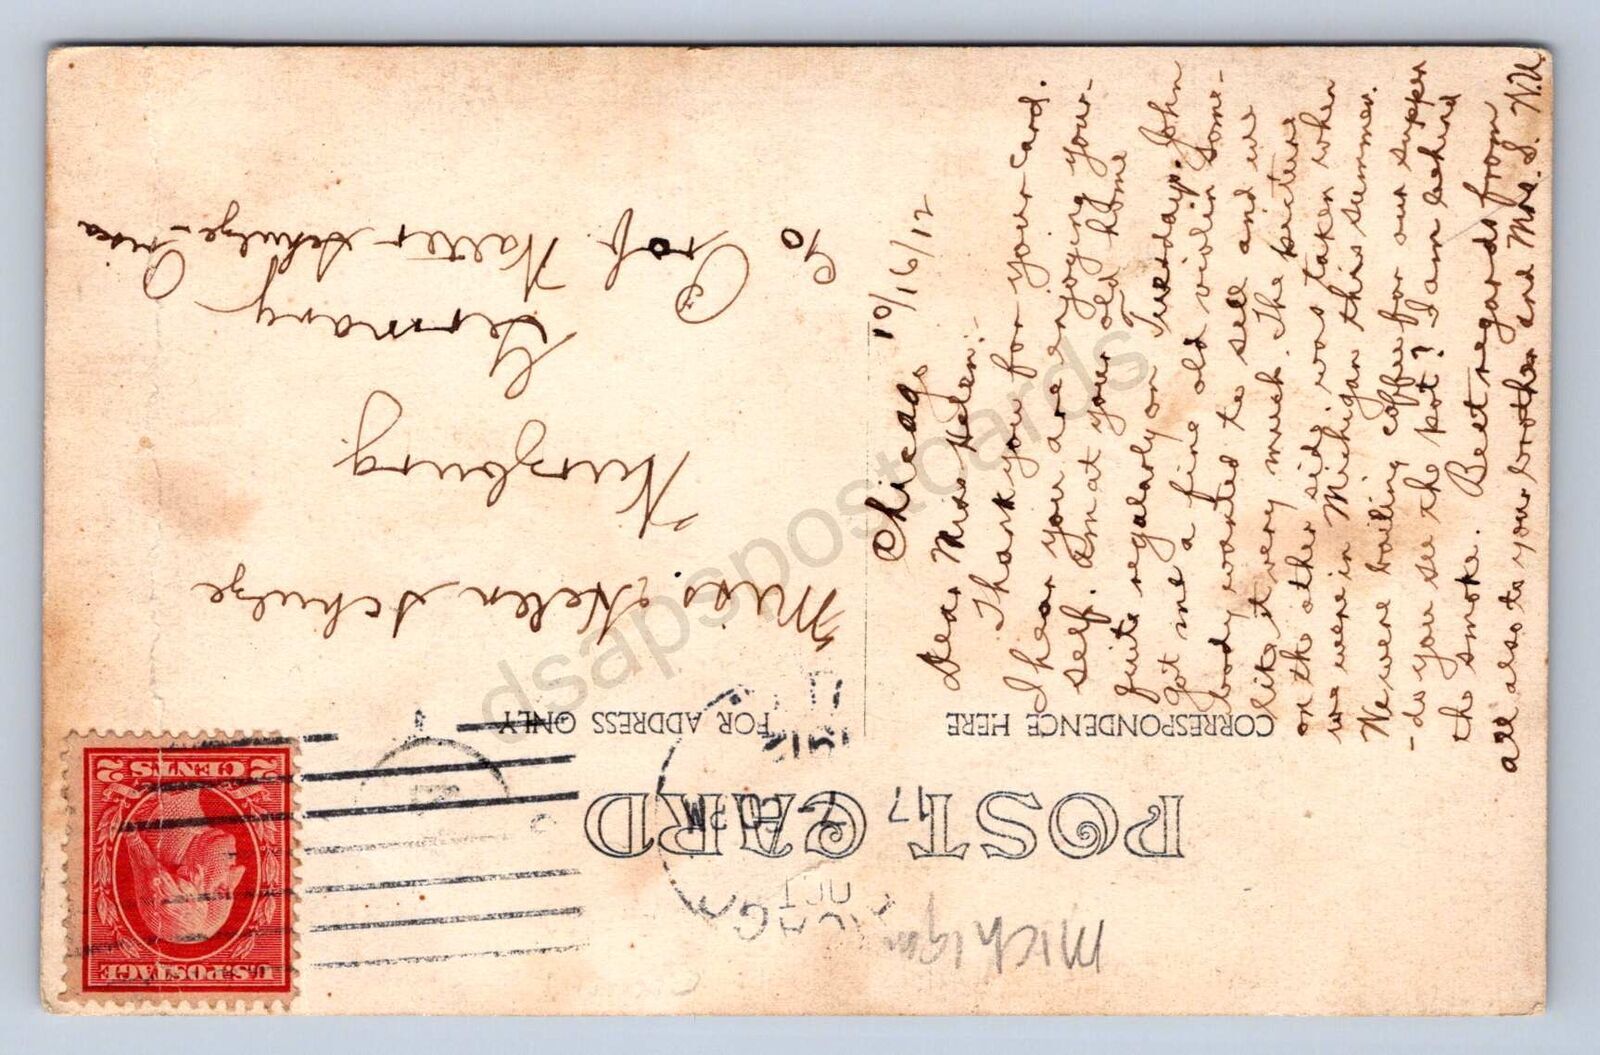 POST CARD
CORRESPONDENCE HERE
FOR ADDRESS ONLY
U.S. POSTAGE
2 CENTS 2
OCT 17
7 PM
1912
Michigan
Chicago 10/16/12
Dear Miss Helen:-
Thank you for your card.
I hear you are enjoying your-
self. Am at your old home
quite regularly on Tuesdays. John
got me a fine old violin some-
body wanted to sell and we
like it very much. The picture
on the other side was taken when
we were in Michigan this summer.
We were boiling coffee for our supper
- do you see the pot? I am behind
the smoke. Best regards from
all also to your brother and Mrs. S. N.U.
Miss. Helen Schulze
Wurzburg
Germany
c/o Prof. Walter Schulze-
dsapspostcards